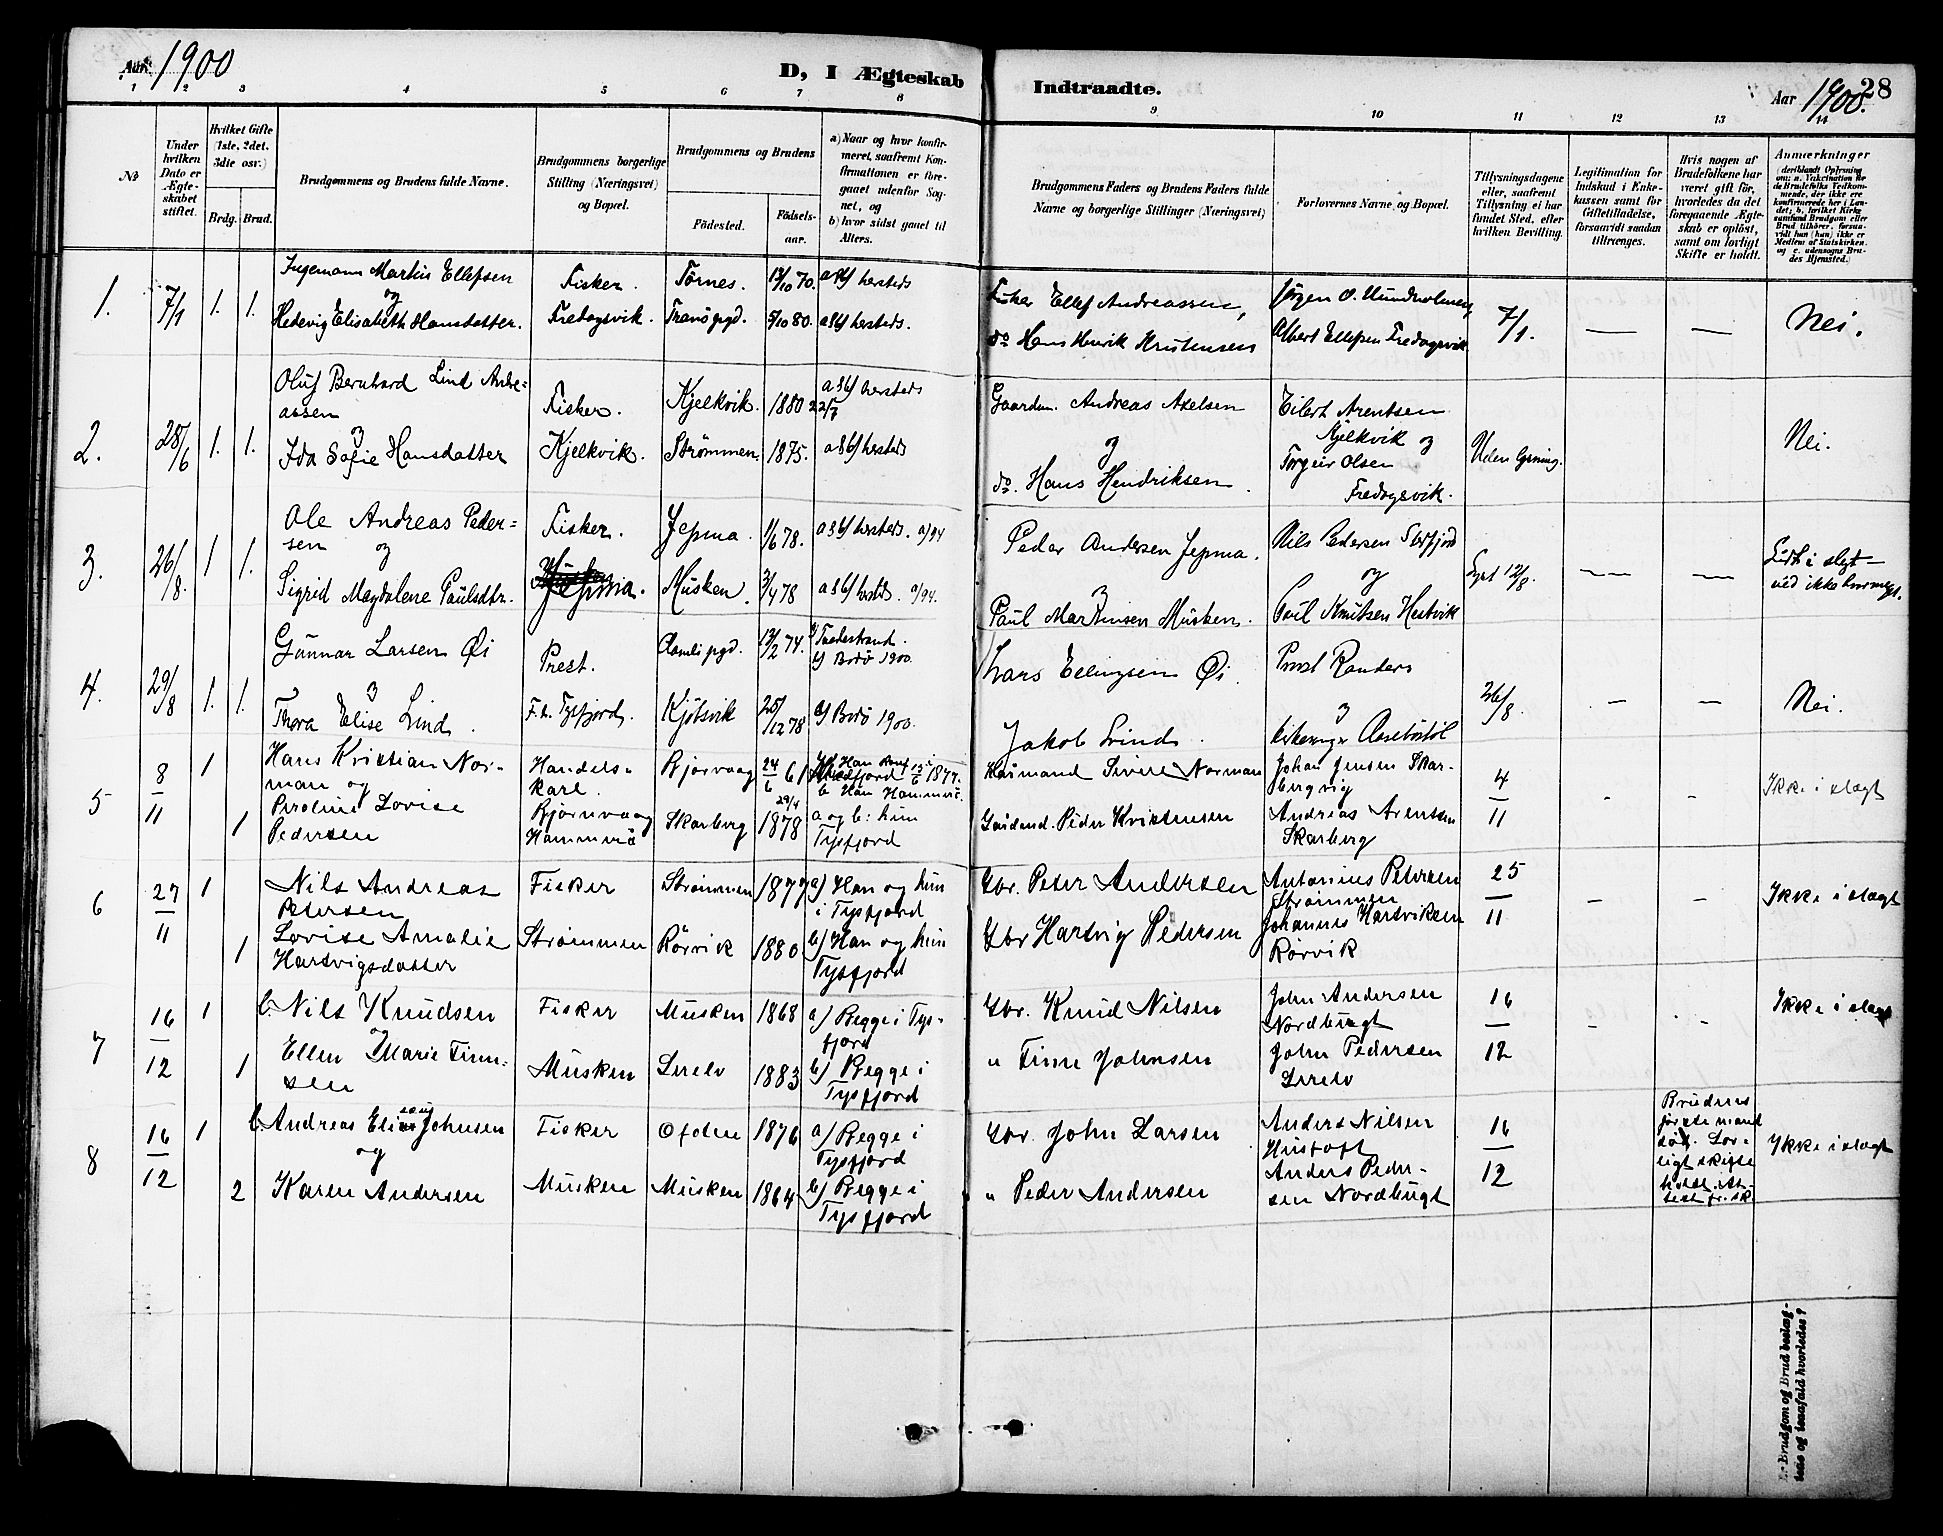 Aar 1900
D, I Ægteskab
Indtraadte.
Aar 1900.
28
1 2 3 4 5 6 7 8 9 10 11 12 13 14
No
Under hvilken Dato er Ægteskabet stiftet.
Hvilket Gifte (1ste, 2det, 3die osv.)
Brdg. Brud.
Brudgommens og Brudens fulde Navne.
Brudgommens borgerlige Stilling (Næringsvei) og Bopæl.
Brudgommens og Brudens
Fødested.
Fødselsaar.
a) Naar og hvor konfirmeret, saafremt Konfirmationen er foregaaet udenfor Sognet, og
b) hvor sidst gaaet til Alters.
Brudgommens Faders og Brudens Faders fulde Navne og borgerlige Stillinger (Næringsvei)
Forlovernes Navne og Bopæl.
Tillysningsdagene eller, saafremt Tillysning ei har fundet Sted, efter hvilken Bevilling.
Legitimation for Indskud i Enkekassen samt for Giftetilladelse, forsaavidt saadan tiltrænges.
Hvis nogen af Brudefolkene har været gift før, hvorledes da det foregaaende Ægteskab er opløst, samt om lovligt Skifte er holdt.
Anmærkninger
1. 7/1 1. 1.
Ingemann Martin Ellefsen
og
Hedevig Elisabeth Hansdatter.
Fisker.
Fredagsvik.
Tørnes.
Tranö pgd.
13/10 70.
5/10 80.
a & b/ hersteds
a & b/ hersteds.
Fisker Ellef Andreassen,
do Hans Henrik Kristensen
Jörgen O. Hundholmen,
Albert Ellefsen Fredagsvik
7/1.
— —
Nei.
2. 28/6 1. 1.
Oluf Bernhard Lind Andreassen
og
Ida Sofie Hansdatter
Fisker.
Kjelkvik.
Kjelkvik.
Strömmen
1880 22/7
1875.
a & b/ hersteds
a & b/ hersteds
Gaardm. Andreas Axelsen
og
do. Hans Hendriksen.
Eilert Arentsen
Kjelkvik og
Torgeir Olsen
Fredagsvik.
Uden lysning.
Nei.
3. 26/8. 1 1.
Ole Andreas Pedersen
og
Sigrid Magdalene Paulsdtr.
Fisker.
Jepma.
Jepma.
Musken
1/6 78.
3/4 78
a & b/ hersteds.
a & b/ hersteds.
Peder Andersen Jepma.
og
Paul Martinsen Musken.
Nils Pedersen
og
Poul Knutsen Hestvik
Lyst 12/8.
— —
Lidt i slegt —
ved ikke hvormeget.
4. 29/8 1. 1.
Gunnar Larsen Øi
og
Thora Elise Lind.
Prest.
F. h. Tysfjord.
Aamli pgd.
Kjöbsvik
13/2 74.
25/12 78
Tvedestrand.
b/ Bodö 1900.
b/ Bodö 1900.
Lars Ellingsen Øi
Jakob Lind.
Prost Randers
og
kirkesanger Aaseböstöl
26/8.
— —
Nei.
5 8/11 1 1
Hans Kristian Norman og
Peroline Lovise
Pedersen
Handelskarl.
Bjørnvaag
Hammerö
Bjørnvaag
Skarberg
24/6 61
29/4
1878
1877.
b Han Hammerö.
a og b: hun
Tysfjord
Haimand Sivert Norman
Gaardmd. Peder Kristensen
Johan Jensen Skarbergvig
Andreas Arentsen
Skarberg
4/11
- -
Ikke i slægt
6 27/11 1 1
Nils Andreas
Petersen
Lovise Amalie
Hartvigsdatter
Fisker
Strømmen
Strømmen
Rørvik
1877
1880
a) Han og hun
i Tysfjord
b) Han og hun
Tysfjord
Gbr. Peter Andersen
Gbr Hartvig Pedersen
Antonius Petersen
Strømmen
Johannes Hartviksen
Rørvik
25/11
- -
Ikke i slægt
7 16/12 1 1
b. Nils Knudsen
Ellen Marie Finnsen
Fisker
Musken
Musken
1868
1883
a) Begge i Tysfjord
b) Begge i
Tysfjord
Gbr. Knud Nilsen
" Finne Johnsen
John Andersen
Nordbugt
John Pedersen
16/12
- -
Ikke i slægt
8 16/12 1 2
b. Andreas Johnsen
og
Karen Andersen
Fisker
Musken
Ofoten
Musken
1876
1864
a) Begge i
Tysfjord
b) Begge i
Tysfjord
Gbr. John Larsen
" Peder Andersen
Anders Nilsen
Hustoft
Anders Pedersen Nordbugt
16/12
Brudens
første mand
død. Lovligt skifte
holdt. Attest fr. sk.
Ikke i slægt
Er Brudgom og Brud beslægtede og isaafald hvorledes?